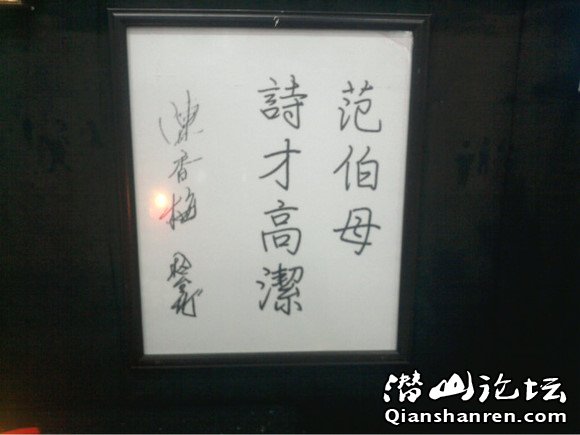 范伯母
詩才高潔
陳香梅
潜山论坛
Qianshanren.com